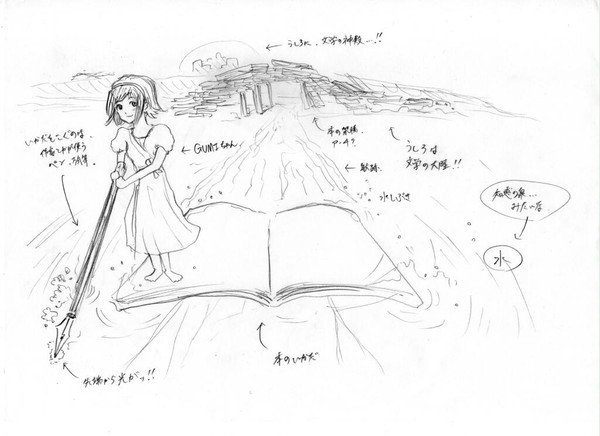 ← うしろに、文学の神殿…!!
いかだをこぐのは、
作者とかが使う
ペン、万年筆
← GUMIちゃん
本の装幀、
アーチ?
うしろは
文学の大陸!!
← 航跡
水しぶき
知恵の泉…
みたいな
水
本のいかだ
先端から光がッ!!